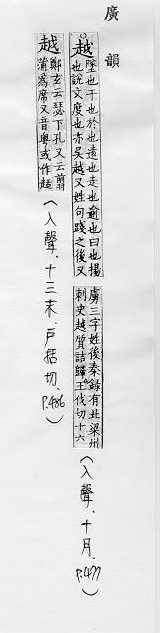 廣韻
越墜也于也於也遠也走也逾也曰也揚
也說文度也亦吳越又姓句踐之後又
虜三字姓後秦錄有北梁州
刺史越質詰歸王伐切十六
(入聲.十月.P.477)
越鄭玄云瑟下孔又云翦
蒲為席又音粵或作趏
(入聲.十三末.戶括切.P.486)